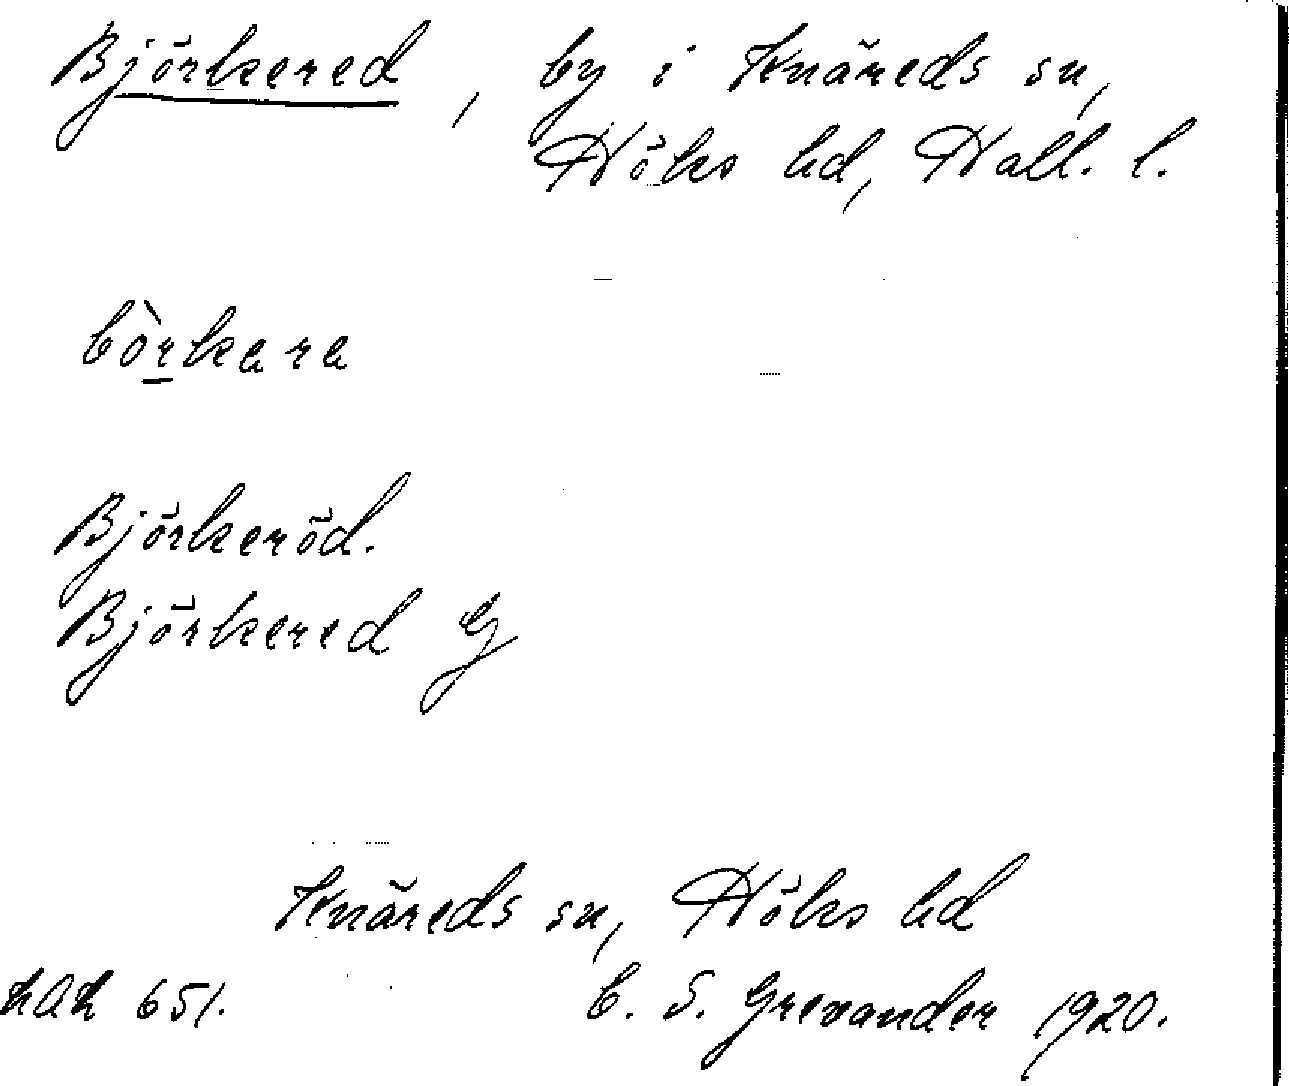 Björkered, by i Knäreds sn,
Höks hd, Hall. l.
bòrkara
Björkeröd.
Björkered G
Knäreds sn, Höks hd
LAL 651. C. S. Grevander 1920.